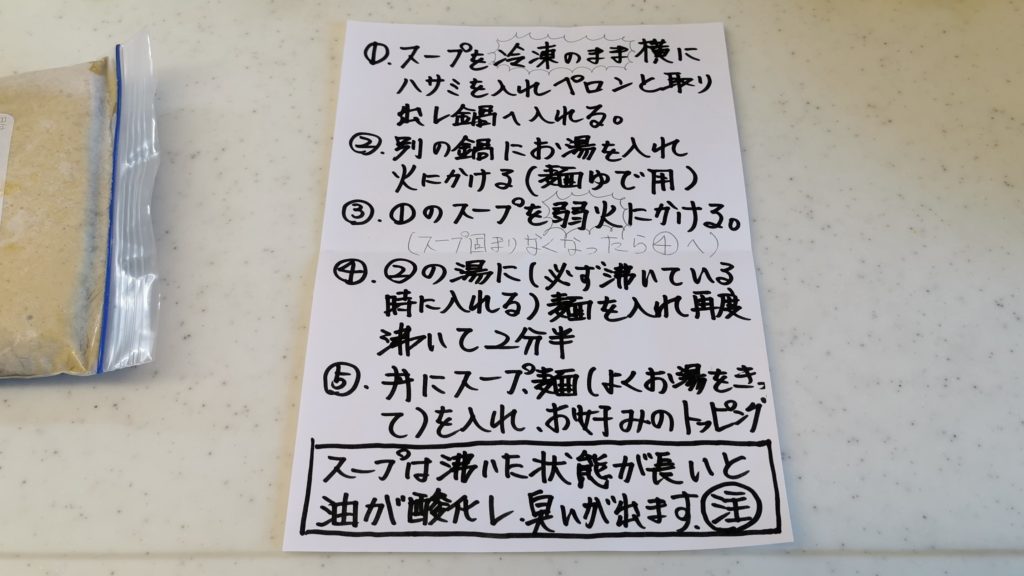 ①.スープを冷凍のまま横に
ハサミを入れペロンと取り
出し鍋へ入れる。
②.別の鍋にお湯を入れ
火にかける(麺ゆで用)
③.①のスープを弱火にかける。
(スープ固まりなくなったら④へ)
④.②の湯に(必ず沸いている
時に入れる)麺を入れ再度
沸いて2分半
⑤.丼にスープ、麺(よくお湯をきっ
て)を入れ、お好みのトッピング
スープは沸いた状態が長いと
油が酸化し、臭いが出ます。㊟